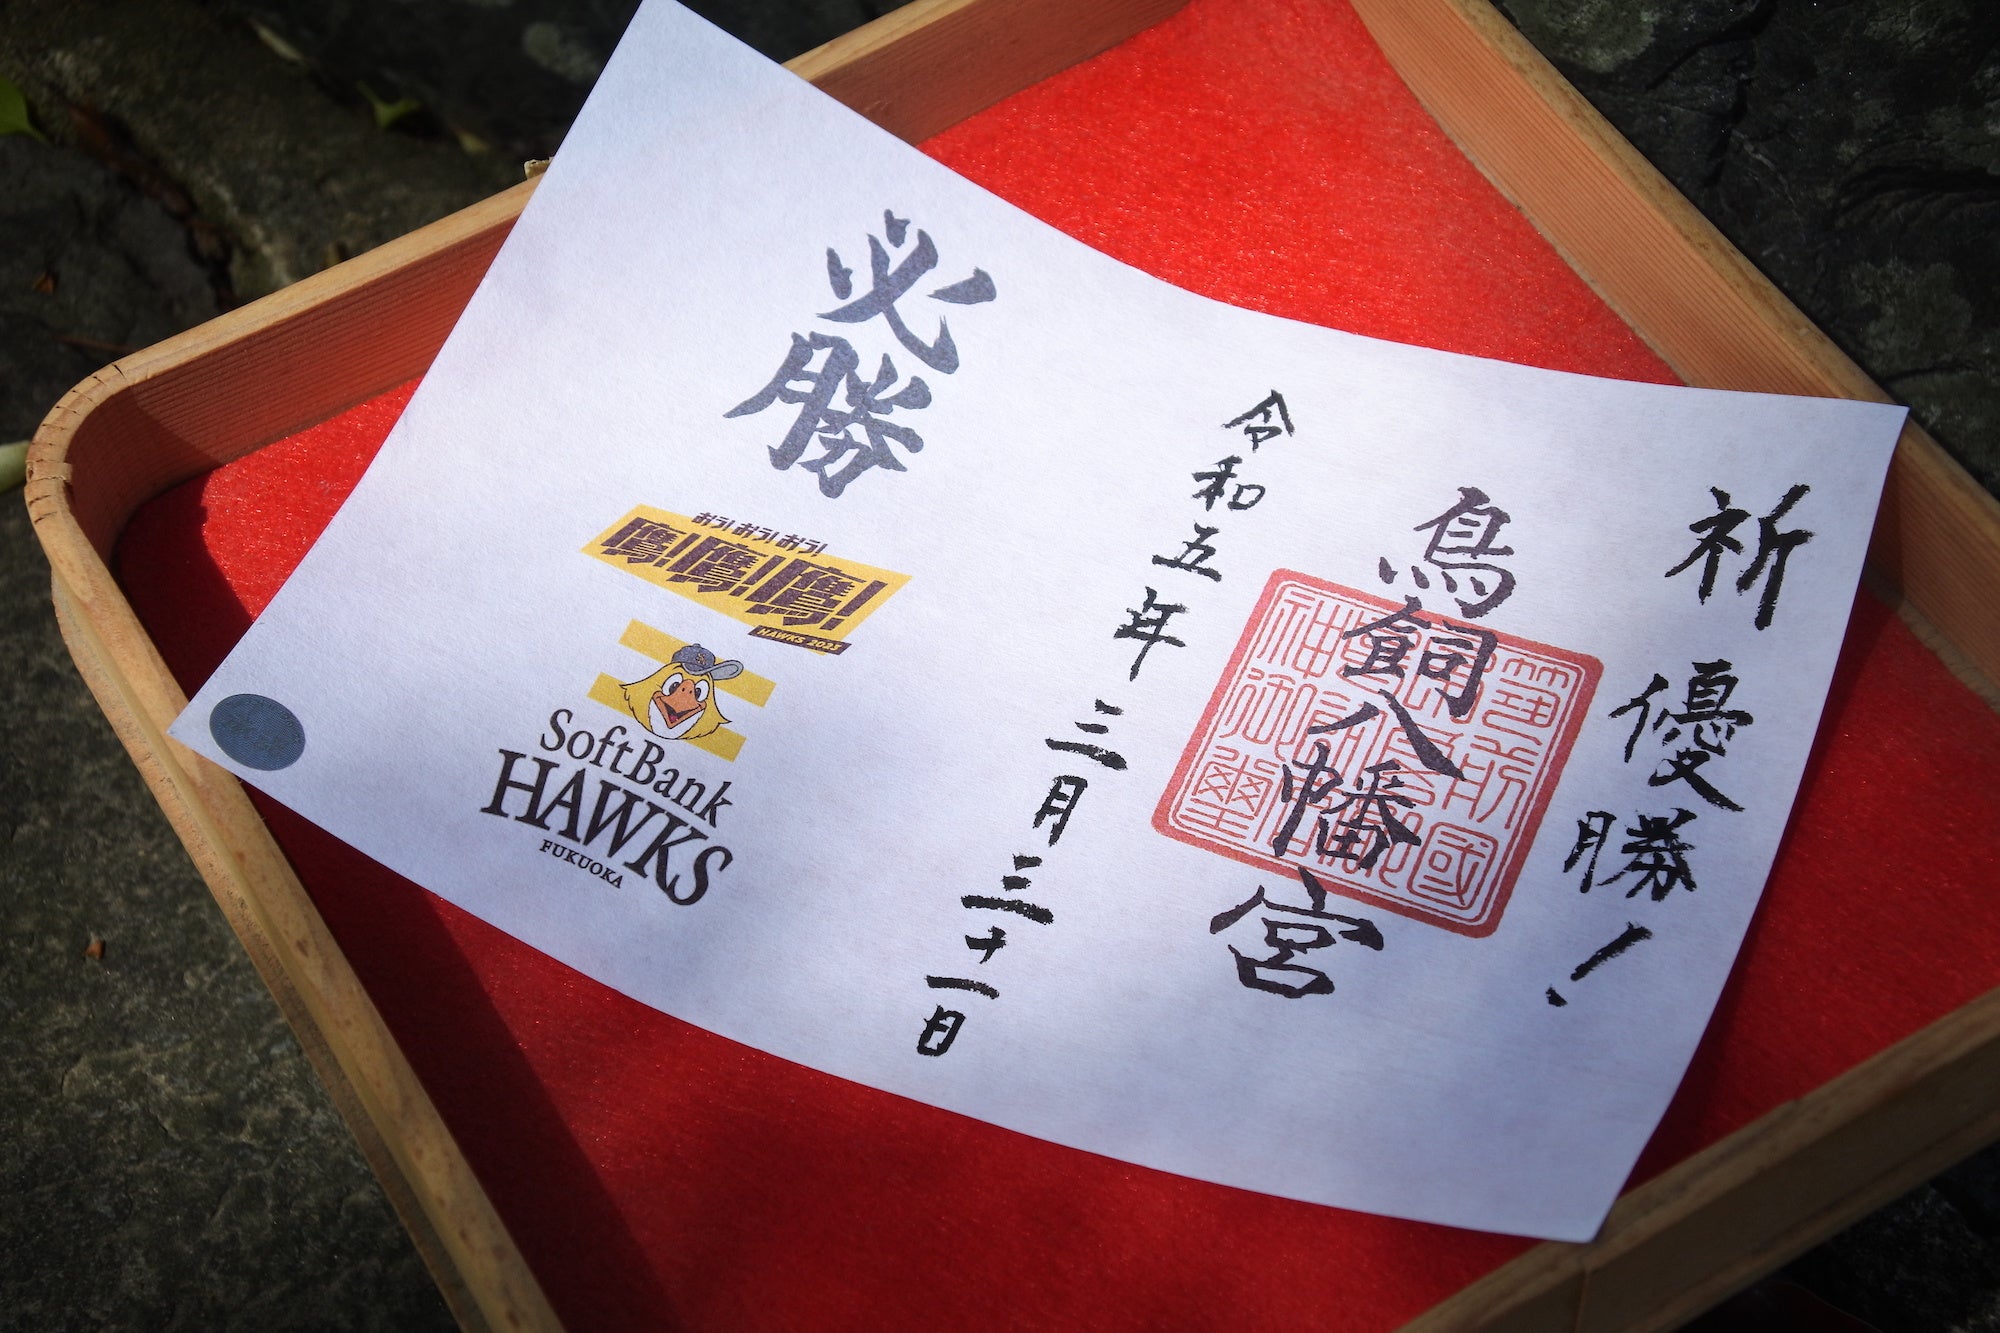 祈 優勝！
鳥飼八幡宮
令和五年 三月 三十一日
必勝
おう！おう！おう！
鷹！鷹！鷹！
HAWKS 2023
SoftBank
HAWKS
FUKUOKA